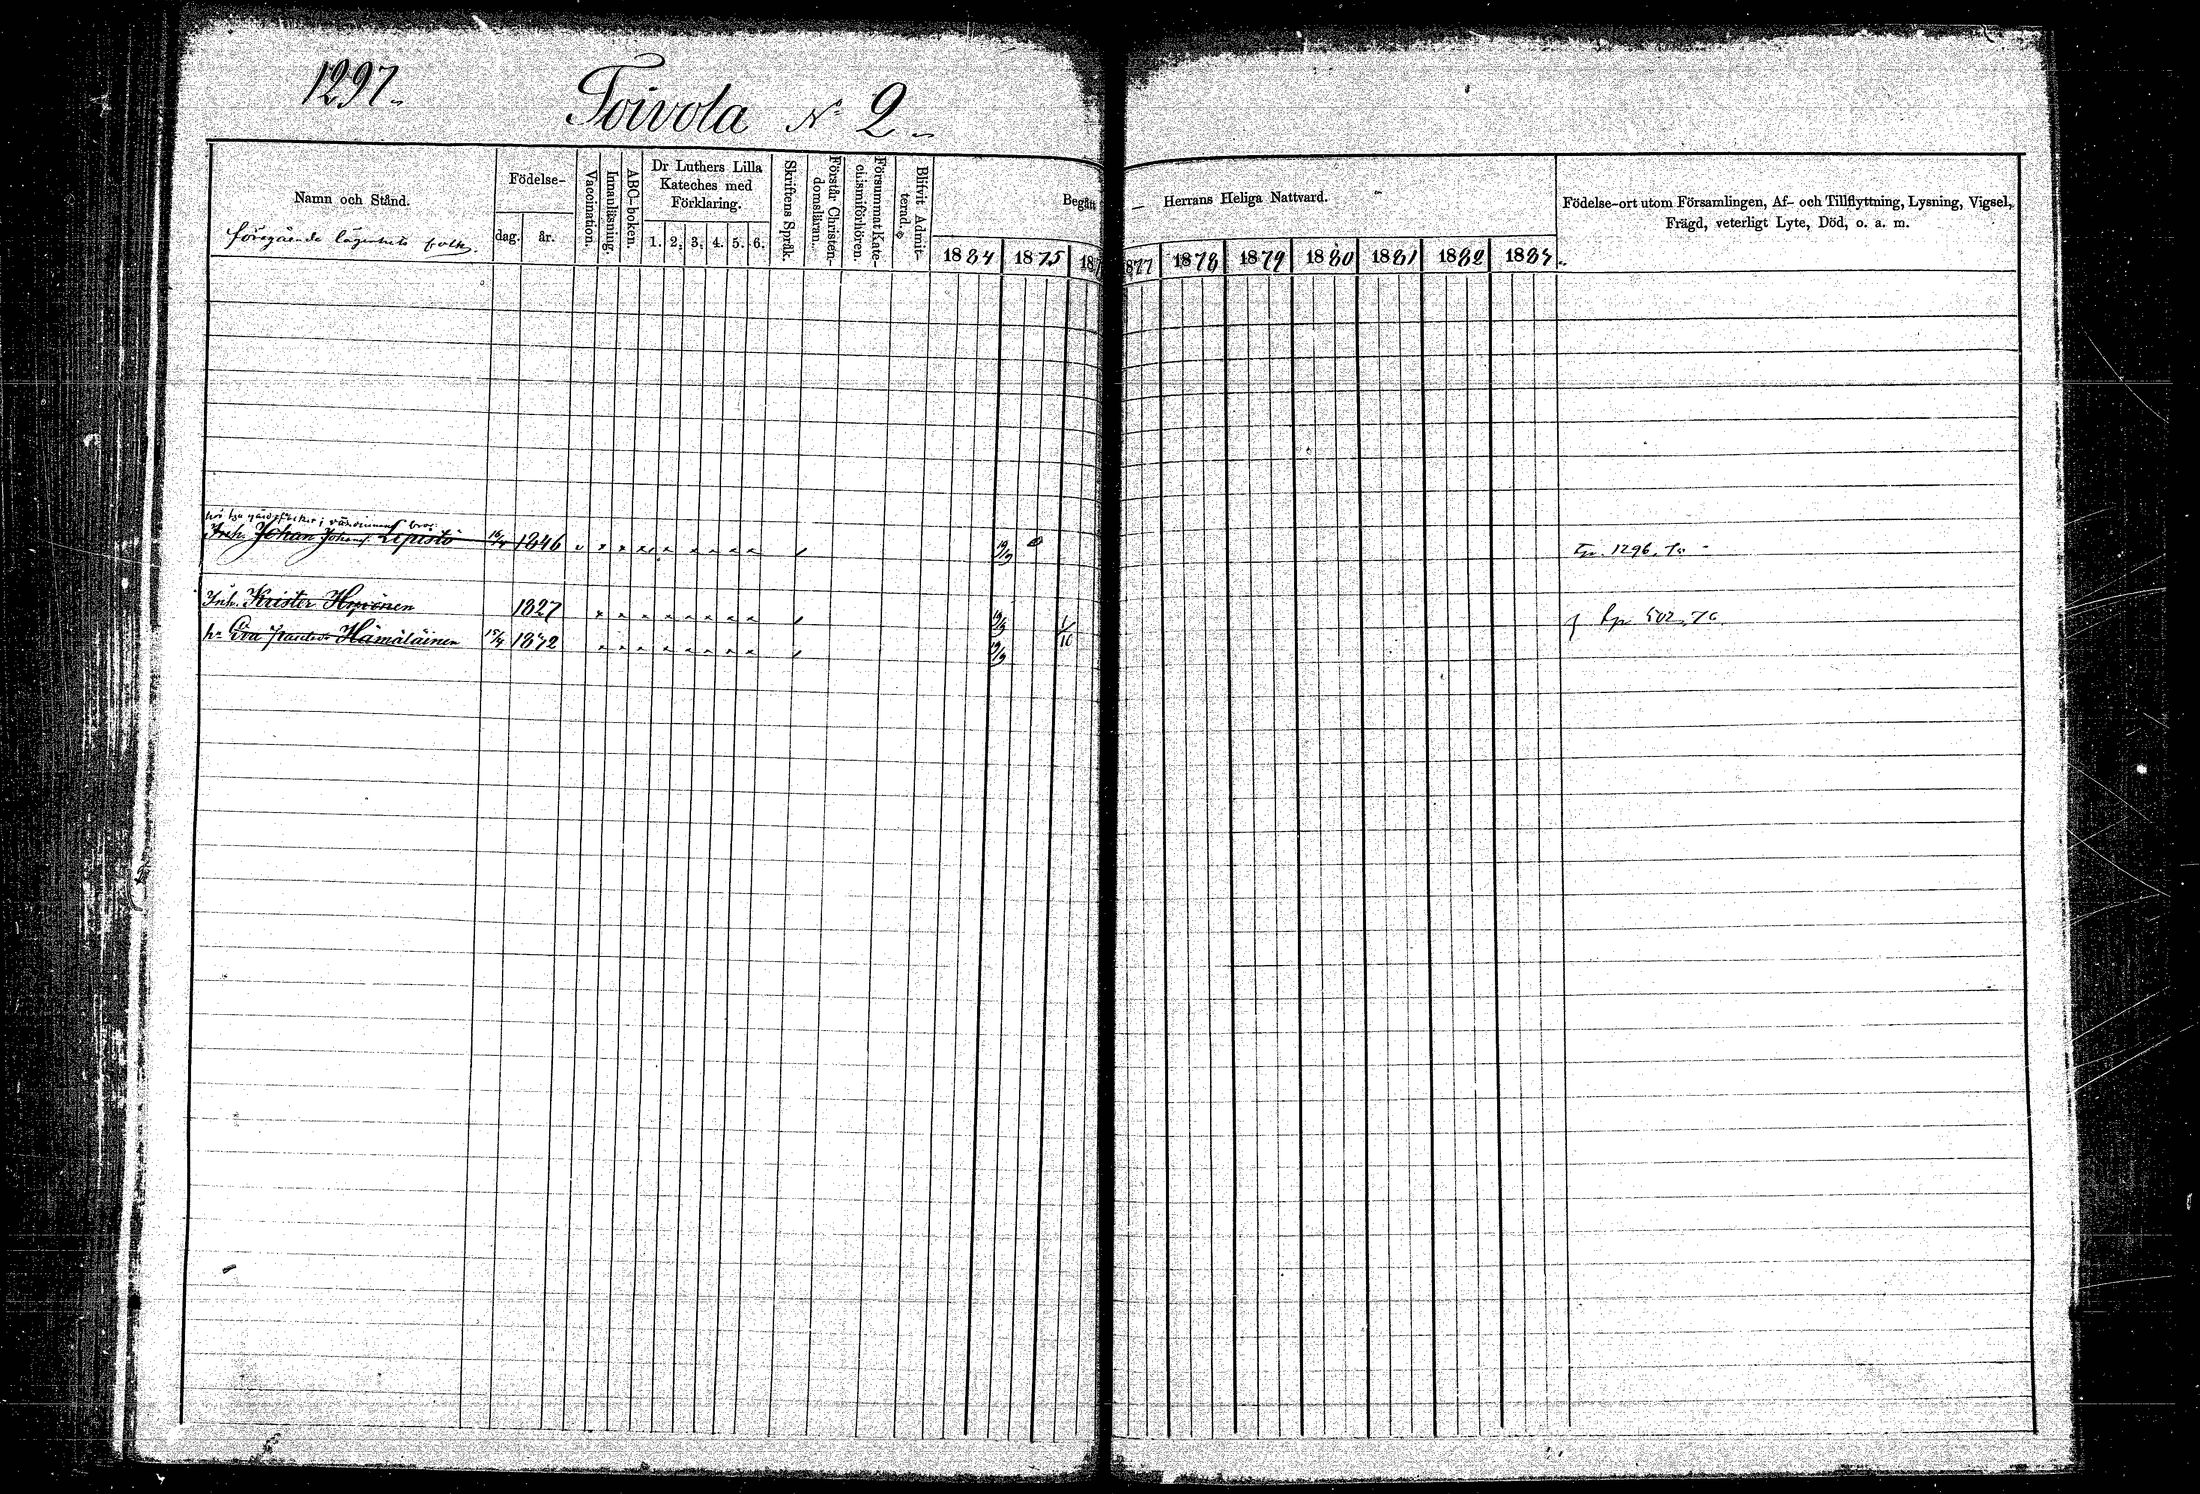 1297.
Toivola No 2
Namn och Stånd.
föregående lägenhets folk.
Födelse-
dag.
år.
Vaccination.
Innanläsning.
ABC-boken.
Dr Luthers Lilla
Kateches med
Förklaring.
1. 2. 3. 4. 5. 6.
Skriftens Språk.
Förstår Christen-
domsläran.
Försummat Kate-
chismiförhören.
Blifvit Admit-
terad.
Begått
Herrans Heliga Nattvard.
1884 1875 187
1877 1878 1879 1880 1881 1882 1883
Födelse-ort utom Församlingen, Af- och Tillflyttning, Lysning, Vigsel,
Frägd, veterligt Lyte, Död, o. a. m.
Inh. Johan Johans. Lepistö 1846 19/9
1296.
Inh. Krister Hyvönen 1827 19/9 1/10
502. 76.
h. Eva Hämäläinen 1842 19/9